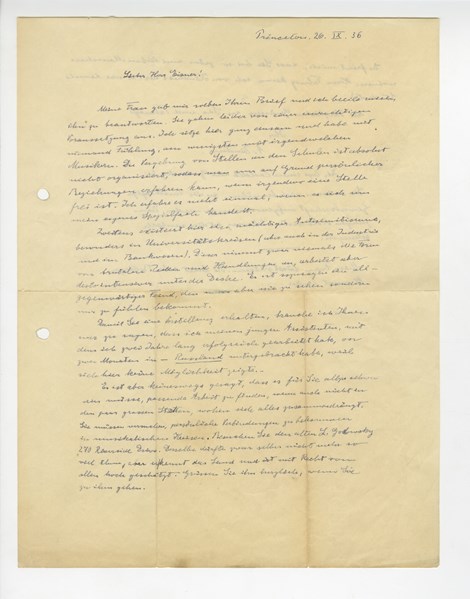 Princeton, 26. IX. 36
Lieber Herr Eisner!
Meine Frau gab mir soeben Ihren Brief und ich beeile mich
ihn zu beantworten. Sie gehen leider von einer unrichtigen
Voraussetzung aus. Ich lebe hier ganz einsam und habe mit
niemand Fühlung, am wenigsten mit irgendwelchen
Musikern. Die Vergebung von Stellen an den Schulen ist absolut
nicht organisiert, sodass man nur auf Grund persönlicher
Beziehungen erfahren kann, wenn irgendwo eine Stelle
frei ist. Ich erfahre es nicht einmal, wenn es sich um
mein eigenes Spezialfach handelt.
Zweitens existiert hier ein mächtiger Antisemitismus,
besonders in Universitätskreisen (aber auch in der Industrie
und im Bankwesen). Dieser nimmt zwar niemals die Form
von brutalen Reden und Handlungen an, arbeitet aber
desto intensiver unter der Decke. Es ist sozusagen ein all-
gegenwärtiger Feind, den man aber nie zu sehen sondern
nur zu fühlen bekommt.
Damit Sie eine Vorstellung erhalten, brauche ich Ihnen
nur zu sagen, dass ich meinen jungen Assistenten, mit
dem ich zwei Jahre lang erfolgreich gearbeitet habe, vor
zwei Monaten in Russland untergebracht habe, weil
sich hier keine Möglichkeit zeigte.
Es ist aber keineswegs gesagt, dass es für Sie allzu schwer
sein müsse, passende Arbeit zu finden, wenn auch nicht in
den paar grossen Städten, wohin sich alles zusammendrängt.
Sie müssen versuchen persönliche Verbindungen zu bekommen
in musikalischen Kreisen. Besuchen Sie den alten L. Godowsky
270 Riverside Drive. Derselbe dürfte zwar selber nicht mehr so
viel thun, aber er kennt das Land und ist mit Recht von
allen hoch geschätzt. Grüssen Sie ihn herzlich, wenn Sie
zu ihm gehen.